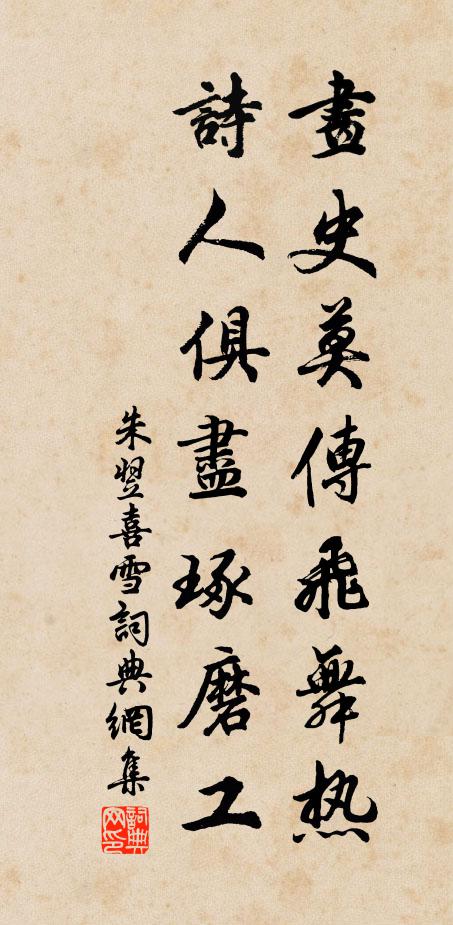 畫史莫傳飛舞热
詩人俱盡琢磨工
朱翌喜雪詞典網集
詞典网印